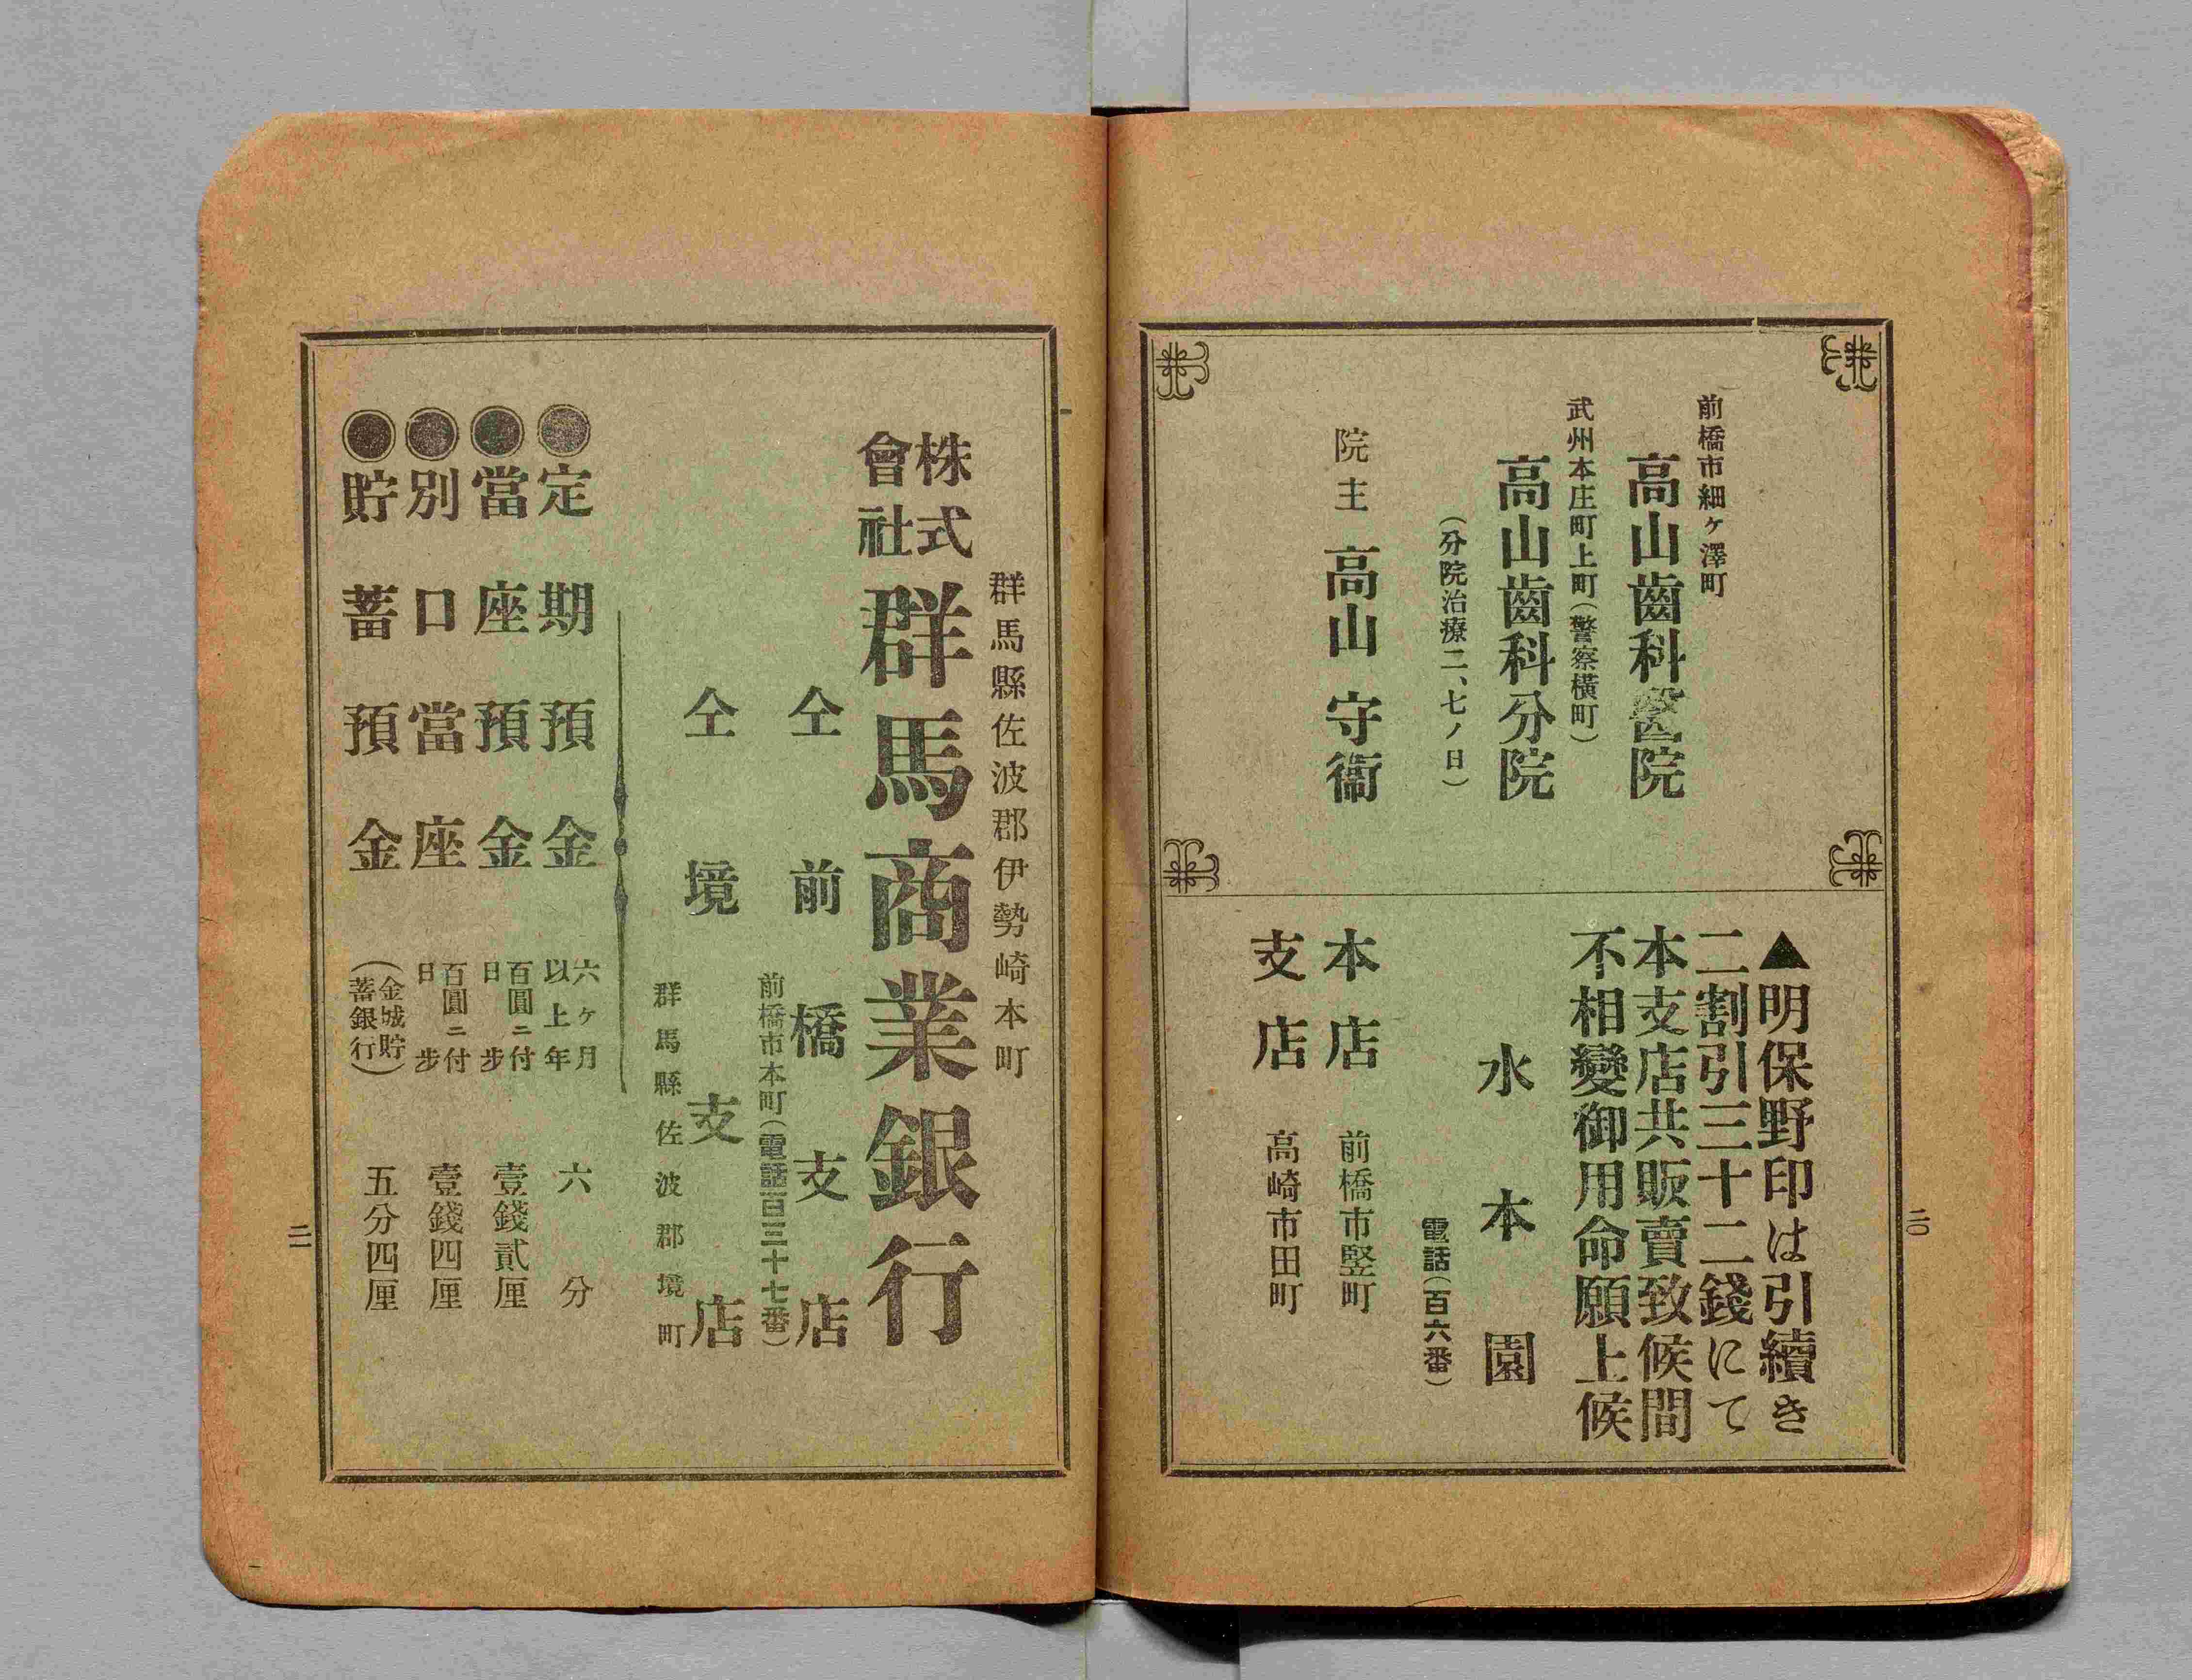 前橋市細ヶ澤町
高山齒科醫院
武州本庄町上町（警察横町）
高山齒科分院
（分院治療二、七ノ日）
院主 高山守衞
▲明保野印は引續き
二割引三十二錢にて
本支店共販賣致候間
不相變御用命願上候
水本園
電話（百六番）
本店 前橋市竪町
支店 高崎市田町
二〇
群馬縣佐波郡伊勢崎本町
株式
會社
群馬商業銀行
仝前橋支店
前橋市本町（電話百三十七番）
仝境支店
群馬縣佐波郡境町
●定期預金 六ヶ月
以上年 六分
●當座預金 百圓ニ付
日步 壹錢貳厘
●別口當座 百圓ニ付
日步 壹錢四厘
●貯蓄預金 （金城貯
蓄銀行） 五分四厘
二一